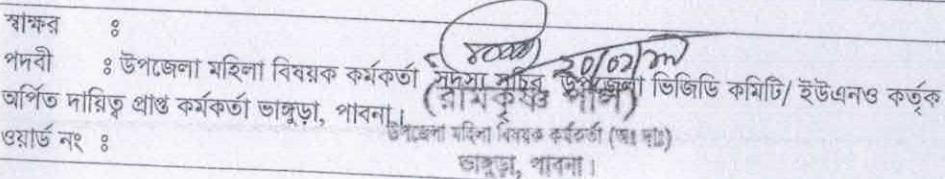 স্বাক্ষর ঃ
পদবী ঃ উপজেলা মহিলা বিষয়ক কর্মকর্তা/ সদস্য সচিব, উপজেলা ভিজিডি কমিটি/ ইউএনও কর্তৃক
অর্পিত দায়িত্ব প্রাপ্ত কর্মকর্তা ভাঙ্গুড়া, পাবনা।
(রামকৃষ্ণ পাল)
উপজেলা মহিলা বিষয়ক কর্মকর্তা (অঃ দাঃ)
ওয়ার্ড নং ঃ
ভাঙ্গুড়া, পাবনা।